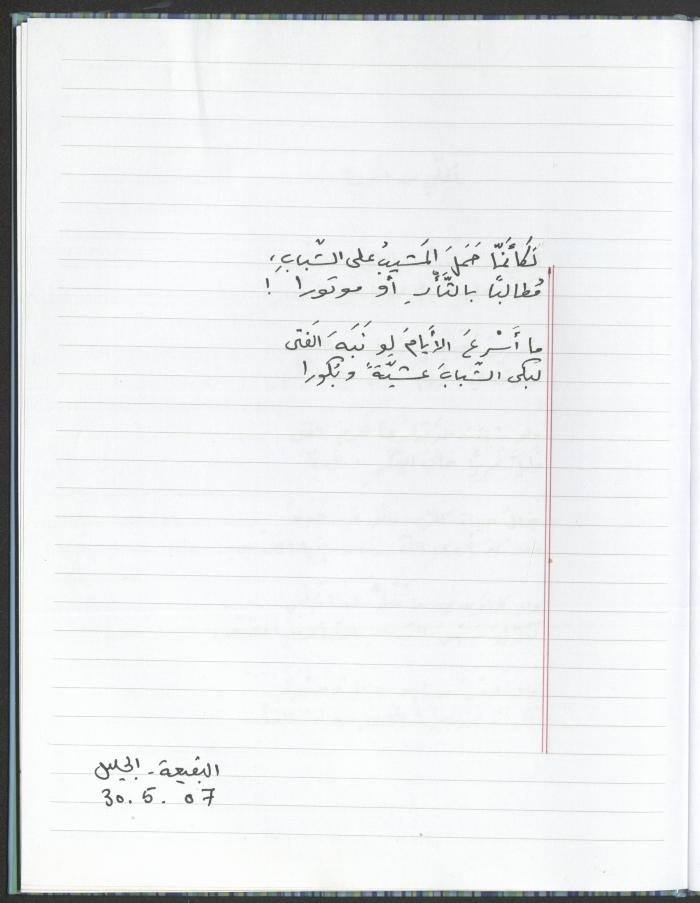 فَكَأَنَّمَا حَمَلَ المَشيبُ على الشّبابِ،
مُطالبًا بالثّأرِ أو موتورا !
ما أَسْرعَ الأيامَ لو نَبَهَ الفَتى
لبكى الشّبابَ عشيّةً وبُكورا
البقيعة - الجليل
30. 5. 07